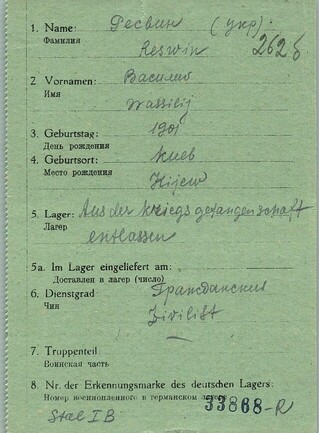 1. Name: Ресвин (укр)
Фамилия
Reswin 262б
2 Vornamen: Василий
Имя
Wassilij
3. Geburtstag: 1901
День рождения
4. Geburtsort: Киев
Место рождения
Kijew
5. Lager: Aus der Kriegsgefangenschaft
Лагерь
entlassen
5a. Im Lager eingeliefert am:
Доставлен в лагерь (число)
6. Dienstgrad Гражданский
Чин
Zivilist
7. Truppenteil:
Воинская часть
8. Nr. der Erkennungsmarke des deutschen Lagers:
Номер военнопленного в германском
Stal I B 33868-R